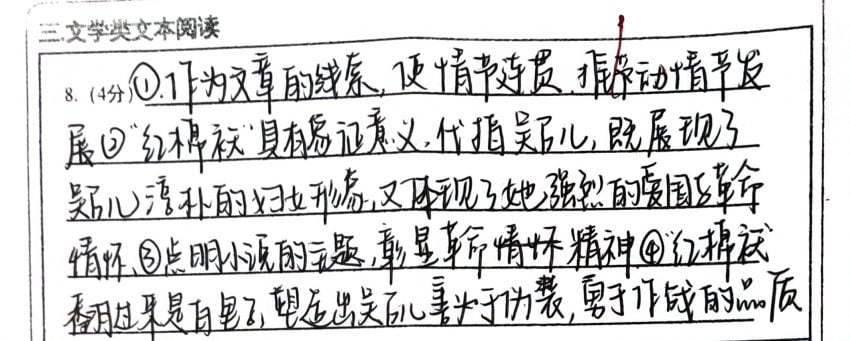 三.文学类文本阅读
8.(4分)①.作为文章的线索,使情节连贯.推动情节发
展②“红棉袄”具有象征意义,代指吴乃儿,既展现了
吴乃儿淳朴的妇女形象,又体现了她强烈的爱国与革命
情怀,③点明小说的主题,彰显革命情怀精神④“红棉袄”
翻过来是白包,塑造出吴乃儿善于伪装,勇于作战的品质